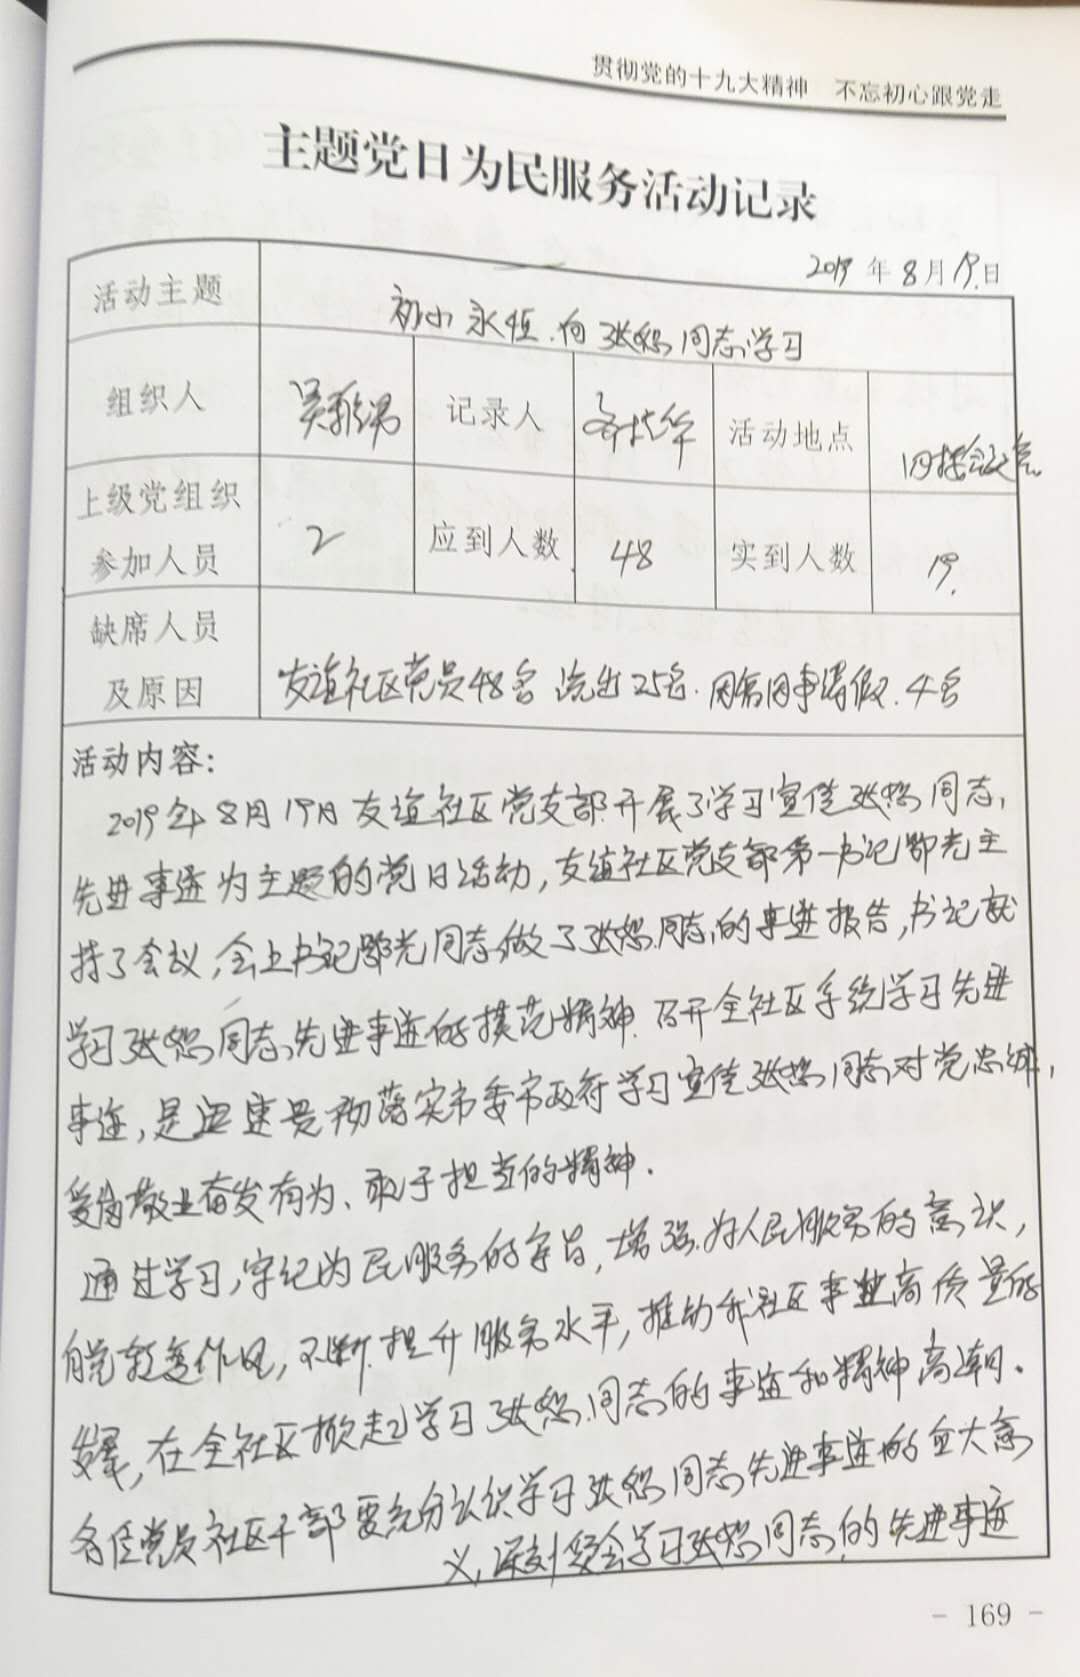 贯彻党的十九大精神 不忘初心跟党走
主题党日为民服务活动记录
2019年8月19日
活动主题 初心永恒.向张 同志学习
组织人 吴 记录人 华 活动地点 四楼会议室
上级党组织
参加人员 2 应到人数 48 实到人数 19.
缺席人员
及原因 友谊社区党员48名 流出25名. 因病因事请假.4名
活动内容:
2019年8月19日友谊社区党支部开展了学习宣传张 同志,
先进事迹为主题的党日活动,友谊社区党支部第一书记 光主
持了会议,会上书记 光同志做了张 同志的事迹报告,书记就
学习张 同志先进事迹的模范精神.召开全社区系统学习先进
事迹,是迅速贯彻落实市委市政府学习宣传张 同志对党忠诚,
爱岗敬业奋发有为、敢于担当的精神.
通过学习,牢记为民服务的宗旨,增强为人民服务的意识,
自觉转变作风,不断提升服务水平,推动我社区事业高质量的
发展,在全社区掀起学习张 同志的事迹和精神高潮.
各位党员社区干部要充分认识学习张 同志先进事迹的重大意
义,深刻领会学习张 同志的先进事迹
- 169 -